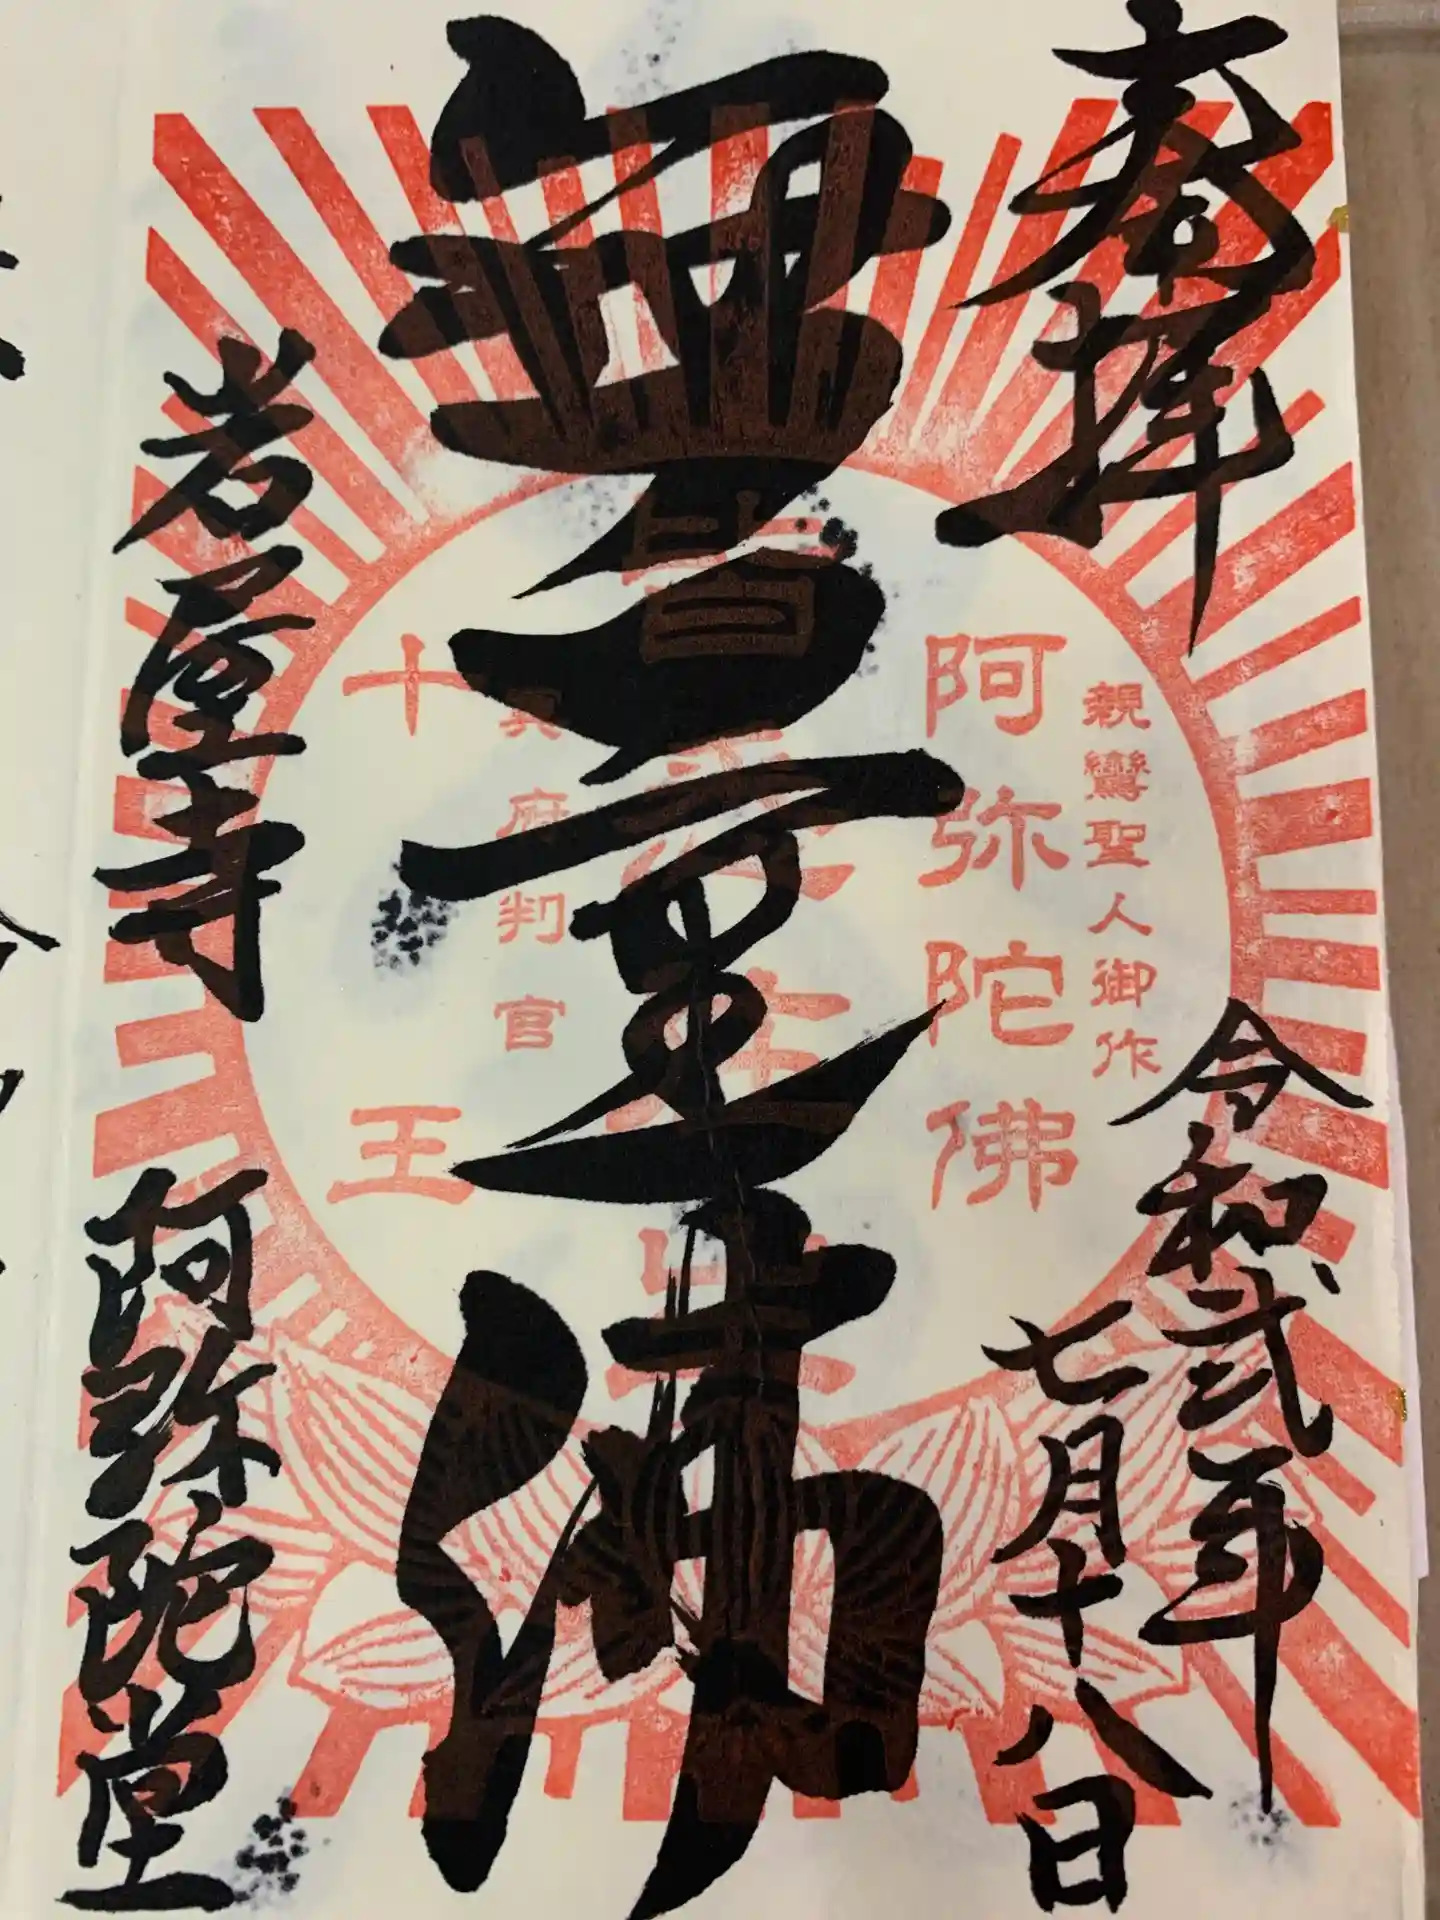 奉拝
令和弐年
七月十八日
親鸞聖人御作
阿弥陀佛
無量寿佛
冥府判官
十王
岩屋寺
阿弥陀堂